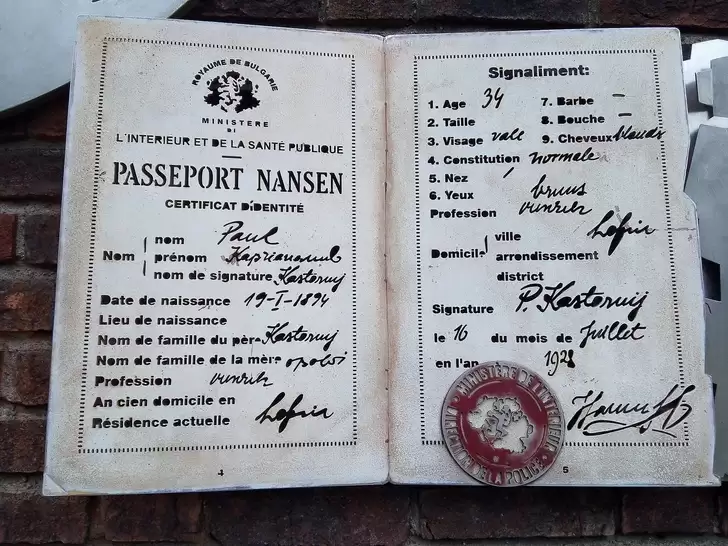 ROYAUME DE BULGARIE
MINISTERE
DI
L'INTERIEUR ET DE LA SANTÉ PUBLIQUE
PASSEPORT NANSEN
CERTIFICAT DİDENTITÉ
Nom
nom Paul
prénom
nom de signature Kasteruij
Date de naissance 19-I-1894
Lieu de naissance
Nom de famille du pèr Kasteruij
Nom de famille de la mère
Profession
An cien domicile en
Résidence actuelle
4
Signaliment:
1. Age 34
2. Taille
3. Visage vale
4. Constitution normale
5. Nez /
6. Yeux bruns
7. Barbe –
8. Bouche –
9. Cheveux
Profession
Domicile
ville
arrondissement
district
Signature P. Kasteruij
le 16 du mois de Juillet
en l'an 1928
MINISTÈRE DE L'INTERIEUR
DE LA POLICE
5